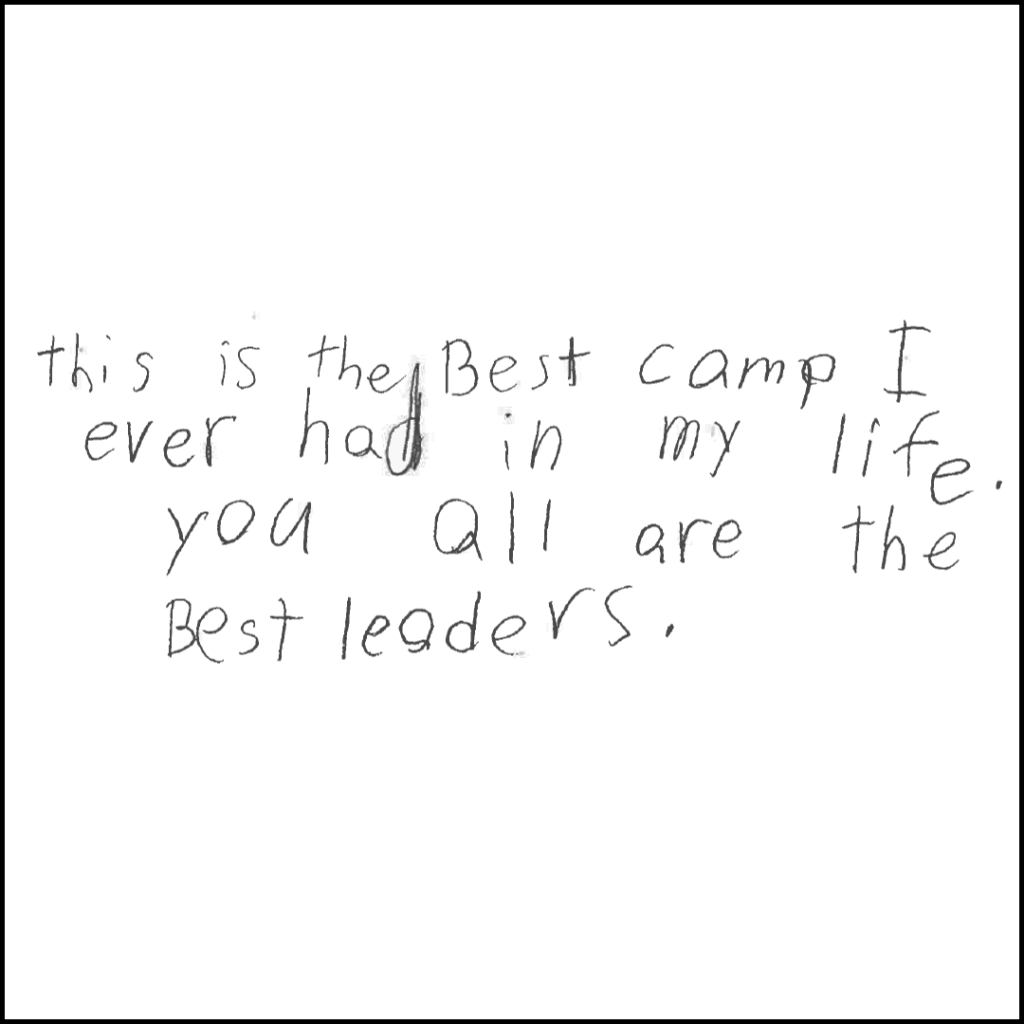 this is the Best camp I
ever had in my life.
you all are the
Best leaders.